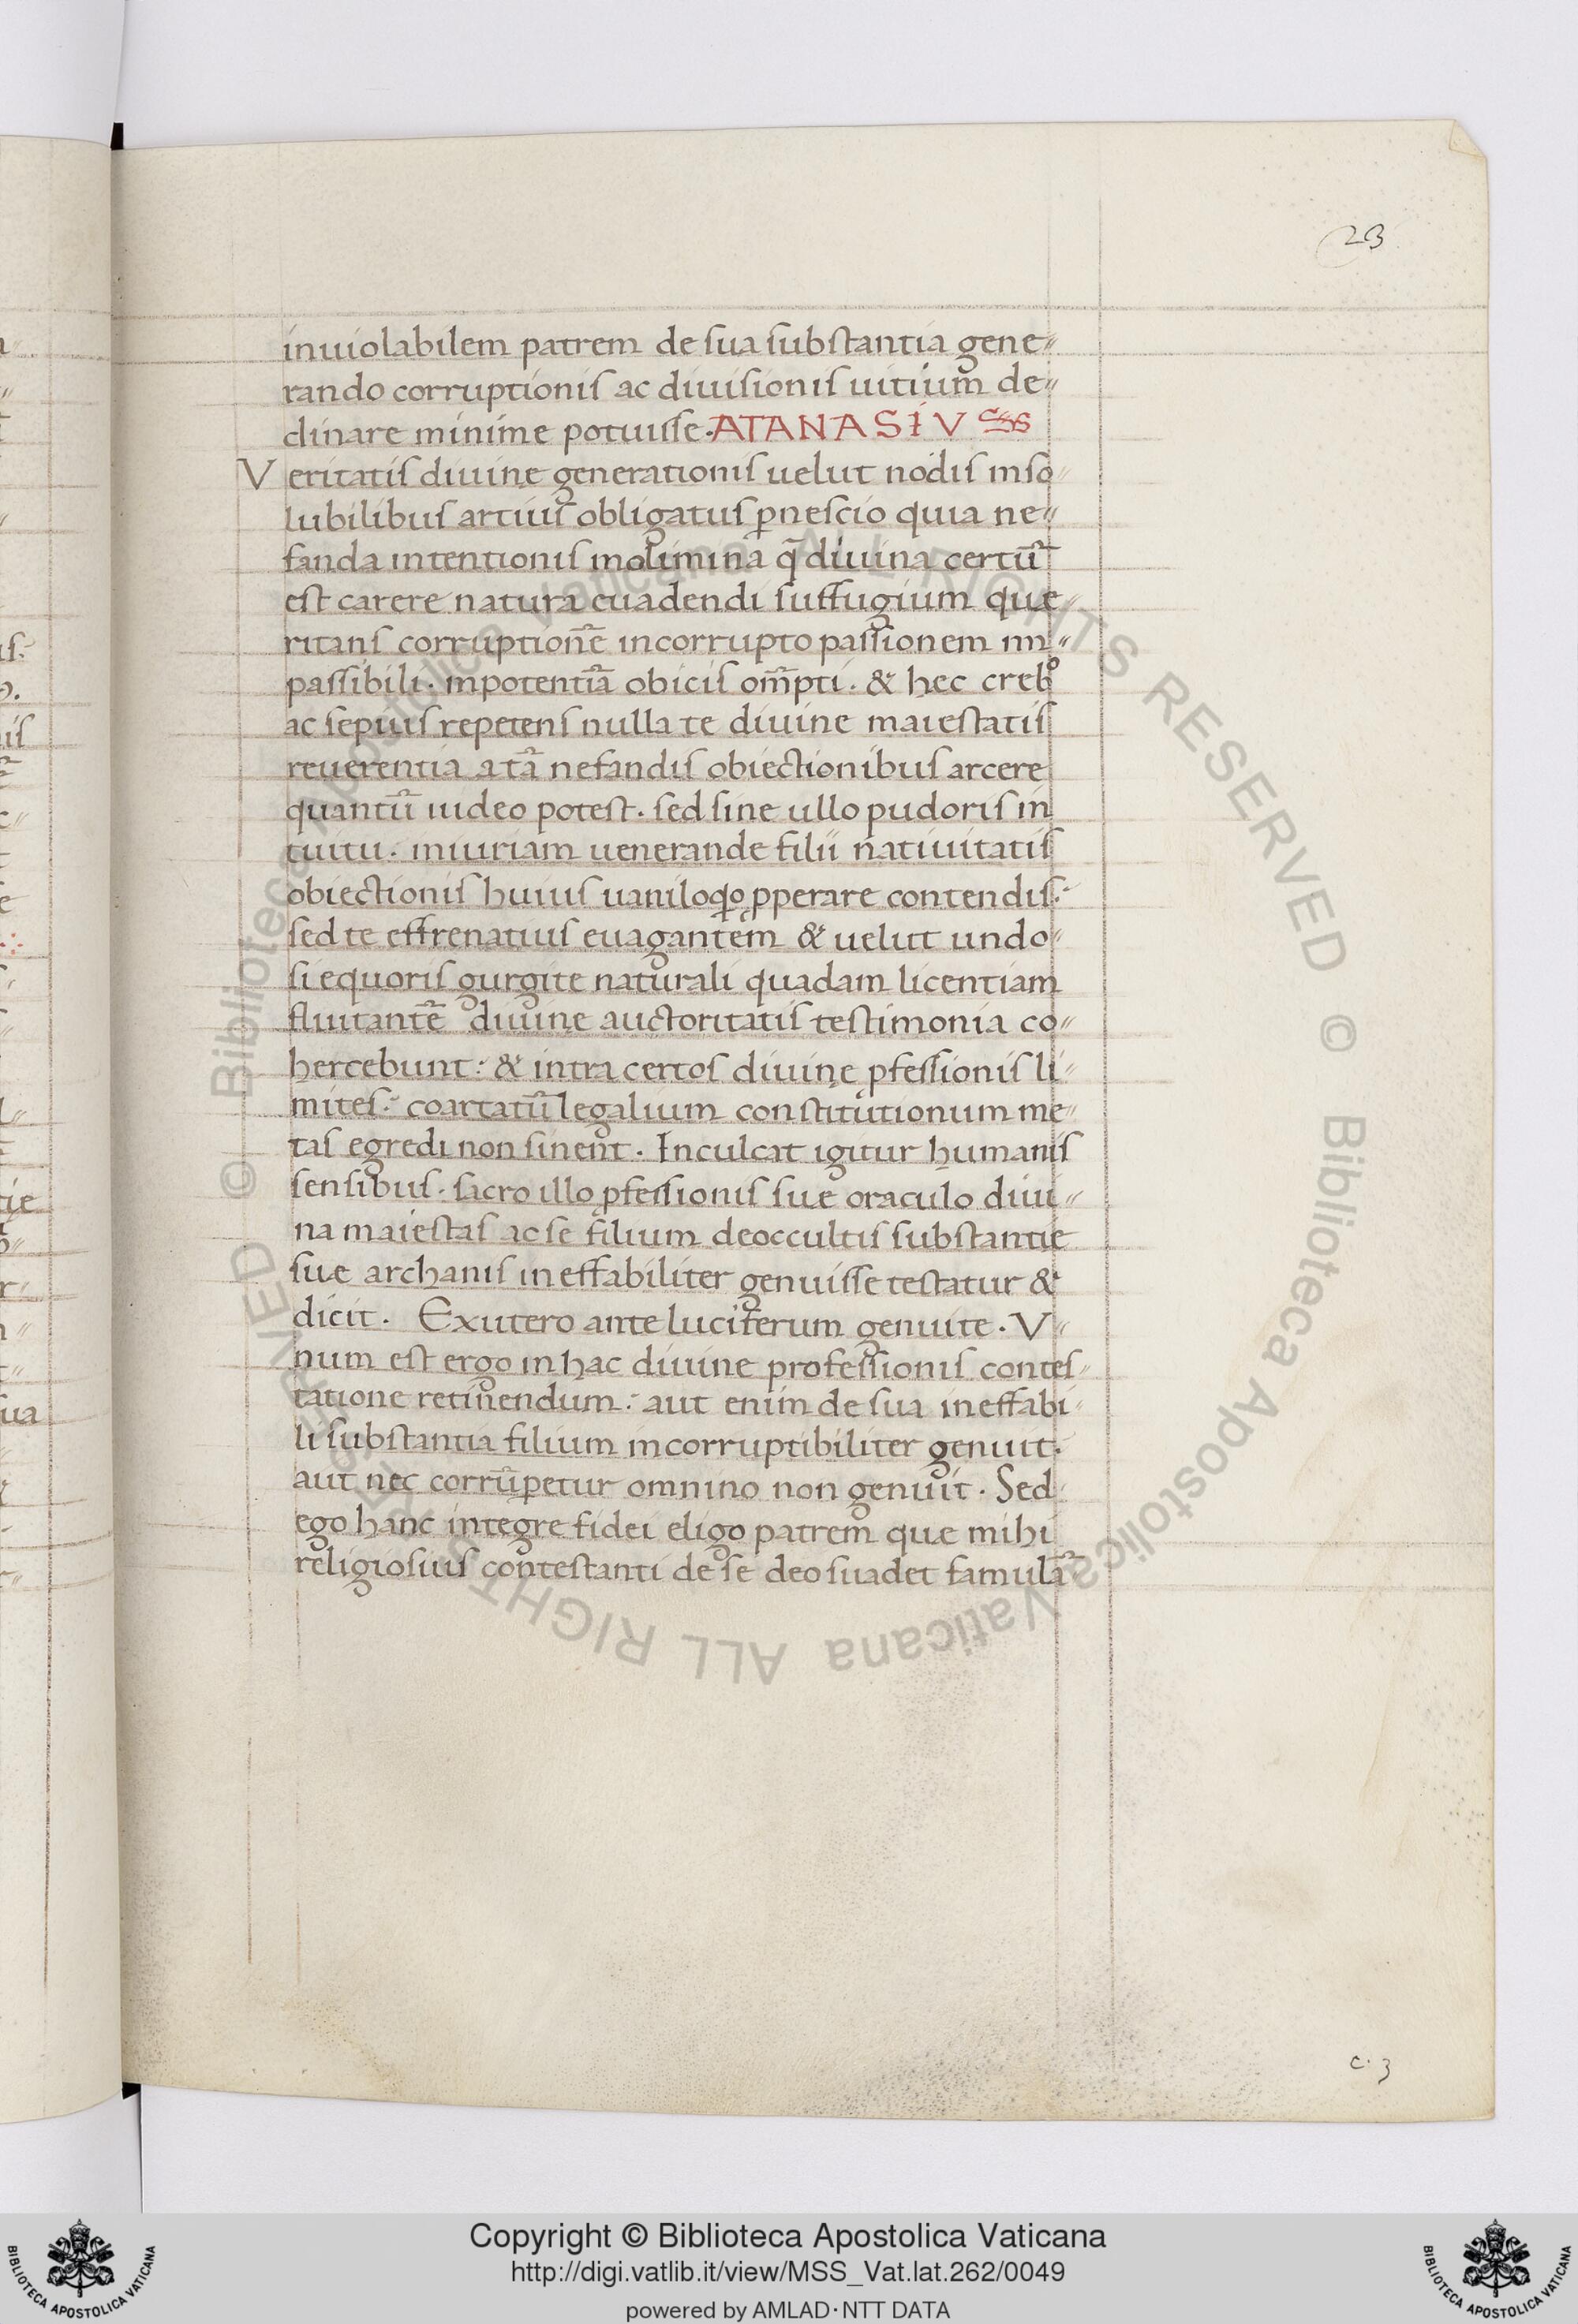 23
inuiolabilem patrem de sua substantia gene〃
rando corruptionis ac diuisionis uitium de〃
clinare minime potuisse. ATANASIVS
Veritatis diuinę generationis uelut nodis inso〃
lubilibus artius obligatus ꝑnescio quia ne〃
fanda intentionis molimina q̄ diuina certū
est carere natura euadendi suffugium quę
ritans corruptionē incorrupto passionem im〃
passibili. inpotentiā obicis om̄pti. & hec crebͦ
ac sepius repetens nulla te diuine maiestatis
reuerentia a tā nefandis obiectionibus arcere
quantū iudeo potest. sed sine ullo pudoris in
tuitu. iniuriam uenerande filii natiuitatis
obiectionis huius uaniloqͦ ꝓperare contendis.
sed te effrenatius euagantem & uelut undo〃
si equoris gurgite naturali quadam licentiam
fluitantē diuine auctoritatis testimonia co〃
hercebunt: & intra certos diuinę ꝓfessionis li〃
mites: coartatū legalium constitutionum me〃
tas egredi non sinent. Inculcat igitur humanis
sensibus. sacro illo ꝓfessionis suę oraculo diui〃
na maiestas ac se filium deoccultis substantię
suę archanis ineffabiliter genuisse testatur &
dicit. Exutero ante luciferum genuite. V〃
num est ergo in hac diuine professionis contes〃
tatione retinendum: aut enim de sua ineffabi〃
li substantia filium incorruptibiliter genuit.
aut nec corrūpetur omnino non genuit. Sed
ego hanc integre fidei eligo patrem quę mihi
religiosius contestanti de se deo suadet famulā
c. 3
© Biblioteca Apostolica Vaticana ALL RIGHTS RESERVED
© Biblioteca Apostolica Vaticana ALL RIGHTS RESERVED
Copyright © Biblioteca Apostolica Vaticana
http://digi.vatlib.it/view/MSS_Vat.lat.262/0049
powered by AMLAD·NTT DATA
BIBLIOTECA APOSTOLICA VATICANA
BIBLIOTECA APOSTOLICA VATICANA